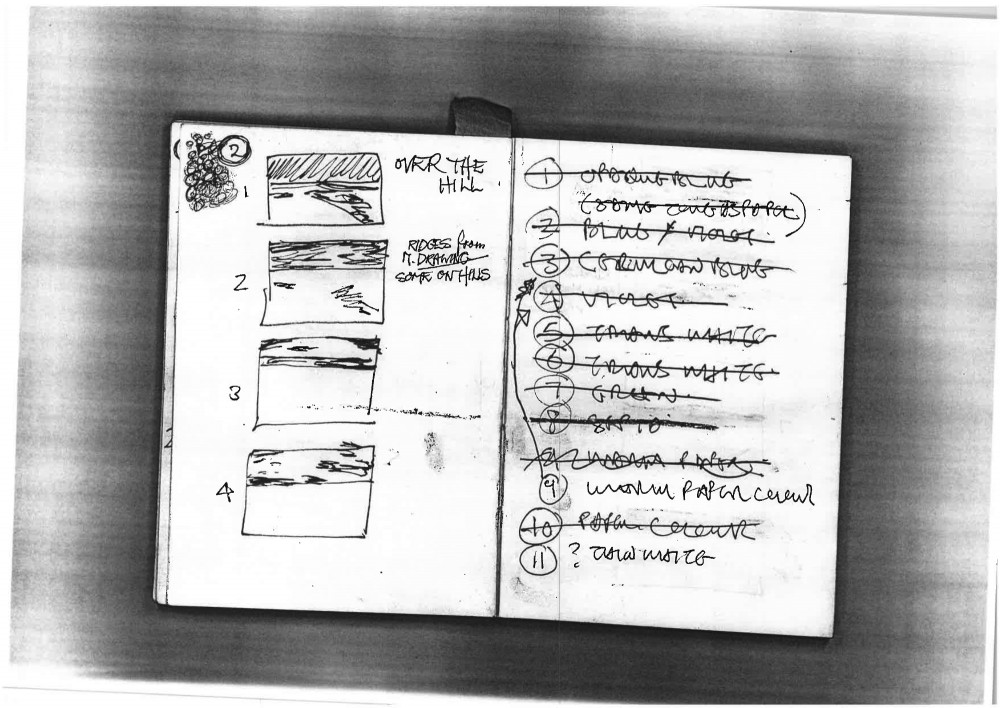 2
1
OVER THE
HILL
2
RIDGES from
M. DRAWING
SOME ON HILLS
3
4
1 OPAQUE BLUE
(SOME
2 BLUE / VIOLET
3 CERULEAN BLUE
4 VIOLET
5 TRANS WHITE
6 TRANS WHITE
7 GREEN
8 SEPIA
9 PAPER
9 PAPER COLOUR
10 PAPER COLOUR
11 ? THIN WHITE